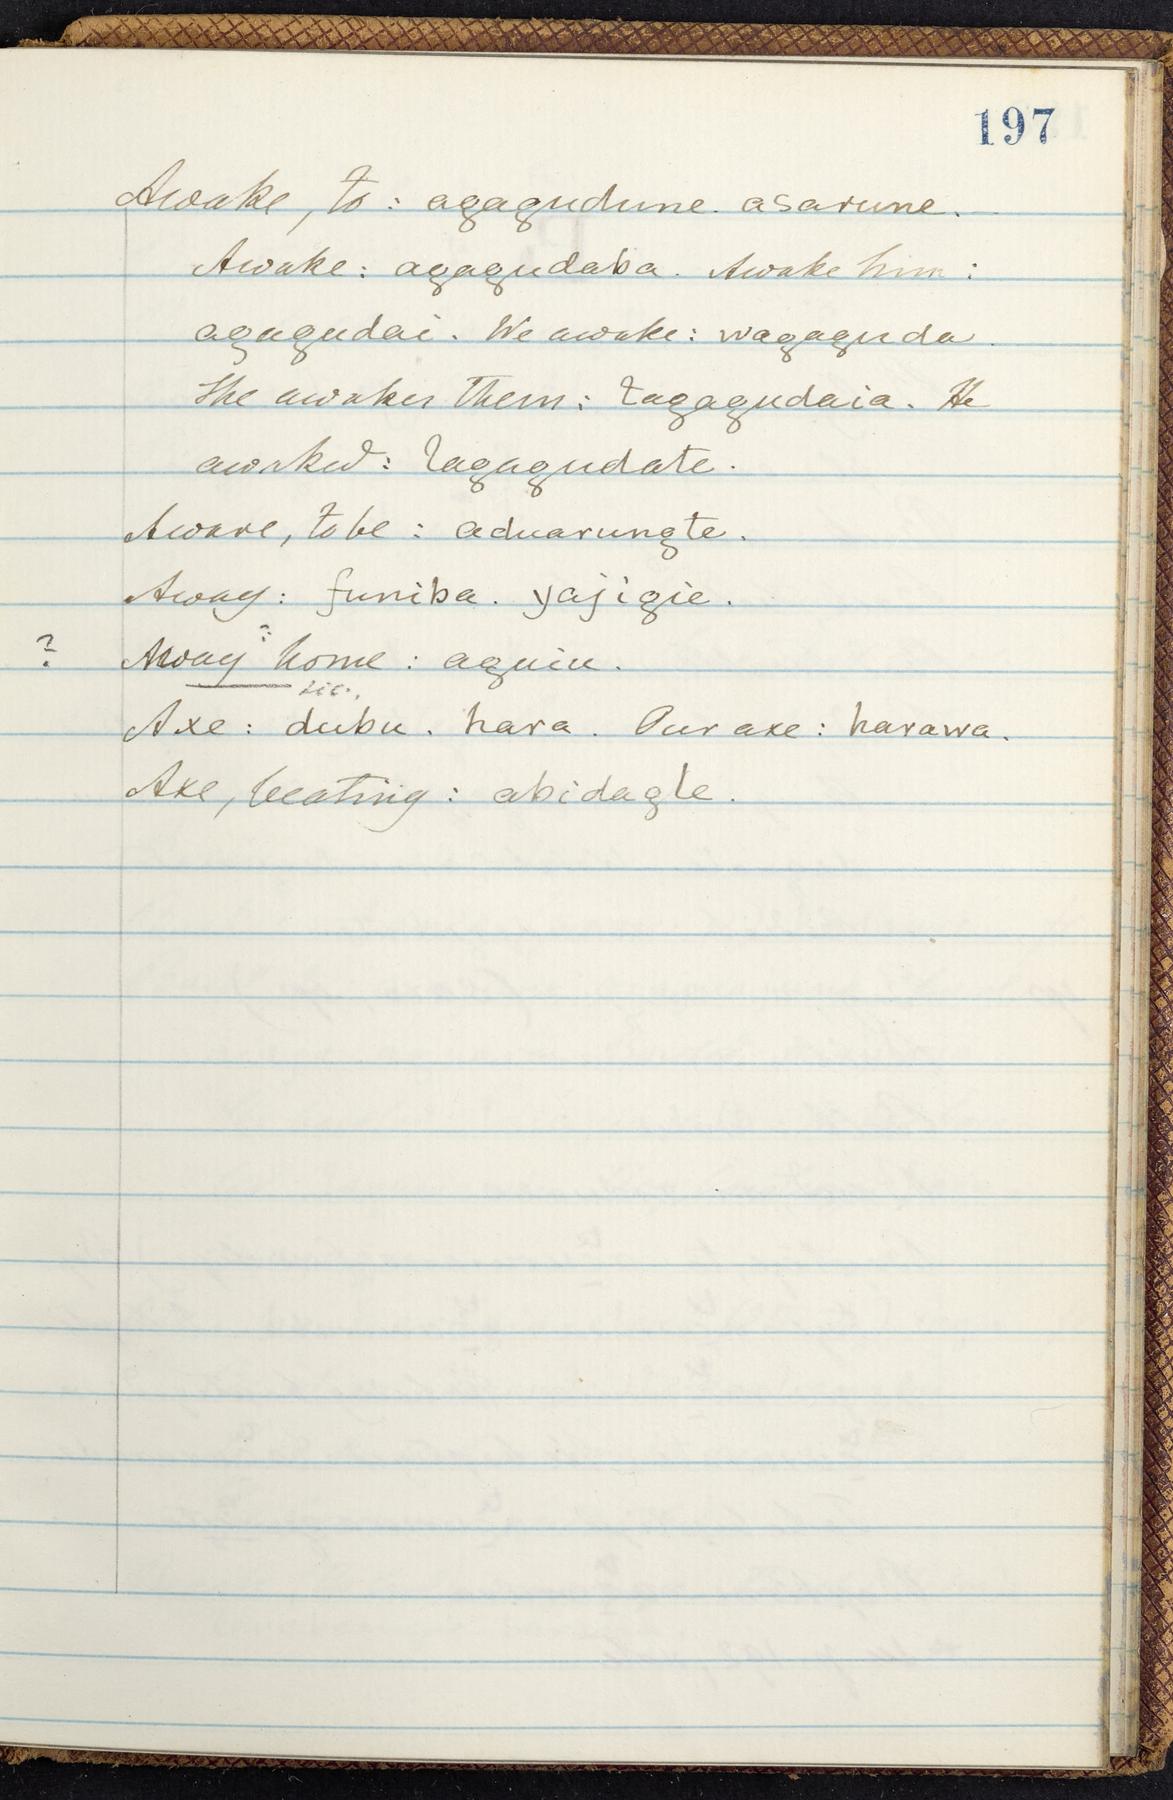 197
Awake, to: agagudune. asarune.
Awake: agagudaba. Awake him:
agagudai. We awake: wagaguda.
She awakes them: tagagudaia. He
awaked: lagagudate.
Aware, to be: aduarungte.
Away: funiba. yajigie.
? Away ? home: aguiu.
sic.
Axe: dubu. hara. Our axe: harawa.
Axe, beating: abidagle.